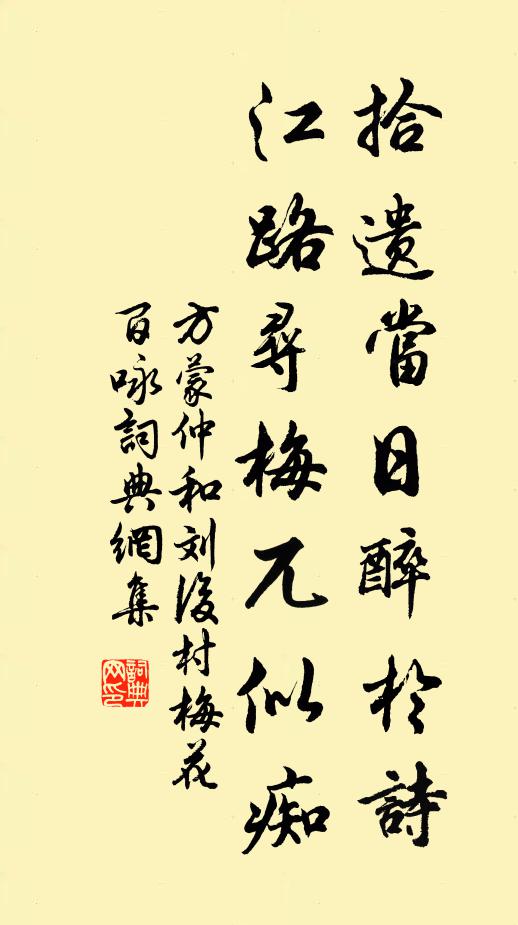 拾遺當日醉於詩
江路尋梅兀似痴
方蒙仲和刘後村梅花
百咏詞典網集
詞典
网印